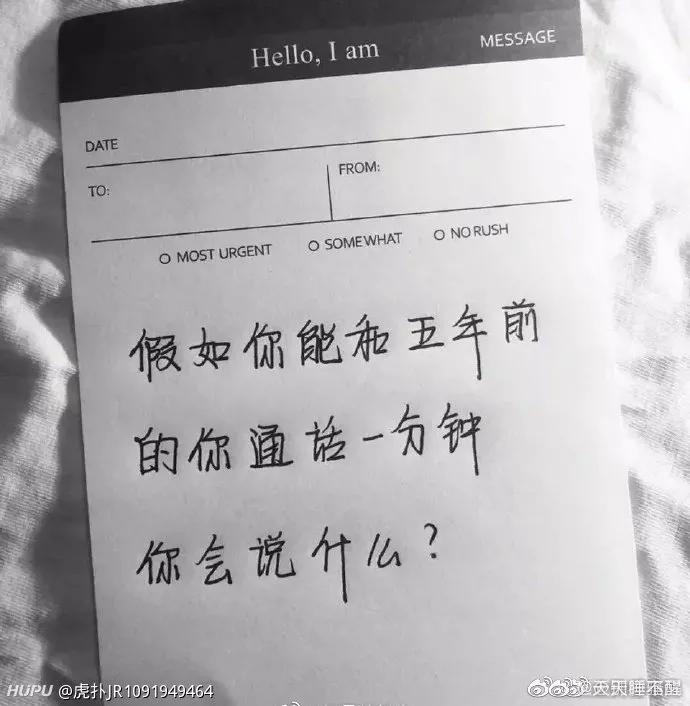 Hello, I am
MESSAGE
DATE
TO:
FROM:
MOST URGENT
SOMEWHAT
NO RUSH
假如你能和五年前
的你通话一分钟
你会说什么?
HUPU @虎扑JR1091949464